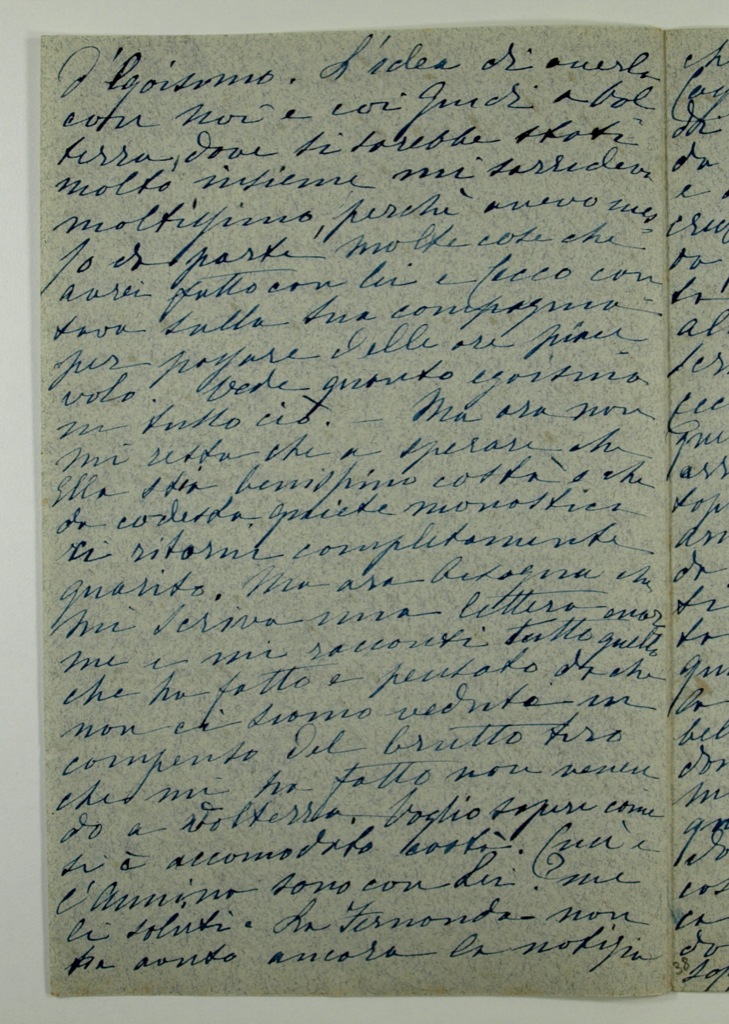 d'Egoismo. L'idea di averla
con noi e coi Guidi a Vol
terra, dove si sarebbe stati
molto insieme mi sorrideva
moltissimo, perchè avevo mes=
so da parte molte cose che
avrei fatto con lei e Cecco con
tava sulla sua compagnia
per passare delle ore piace
vole. Vede quanto egoismo
in tutto ciò. — Ma ora non
mi resta che a sperare che
Ella stia benissimo costà e che
da codesta quiete monastica
ci ritorni completamente
guarito. Ma ora bisogna che
mi scriva una lettera enor=
me e mi racconti tutto quello
che ha fatto e pensato da che
non ci siamo veduti in
compenso del brutto tiro
che mi ha fatto non venen
do a Volterra. Voglio sapere come
si è accomodato costà. e
l'Annina sono con Lei? me
li saluti. La Fernanda non
ha avuto ancora la notizia
ch
doi
da
e
da
al
que
arr
top
do
ti
to
qu
la
bel
don
in
do
cos
ca
do
sop
38